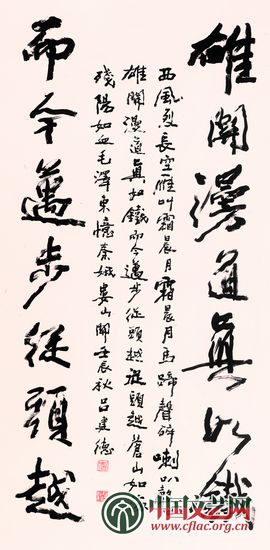 雄關漫道真如鐵
西風烈長空雁叫霜晨月霜晨月馬蹄聲碎喇叭聲
雄關漫道真如鐵而今邁步從頭越從頭越蒼山如
殘陽如血毛澤東憶秦娥婁山關壬辰秋呂建德
而今邁步從頭越
中国文艺网
www.cflac.org.cn